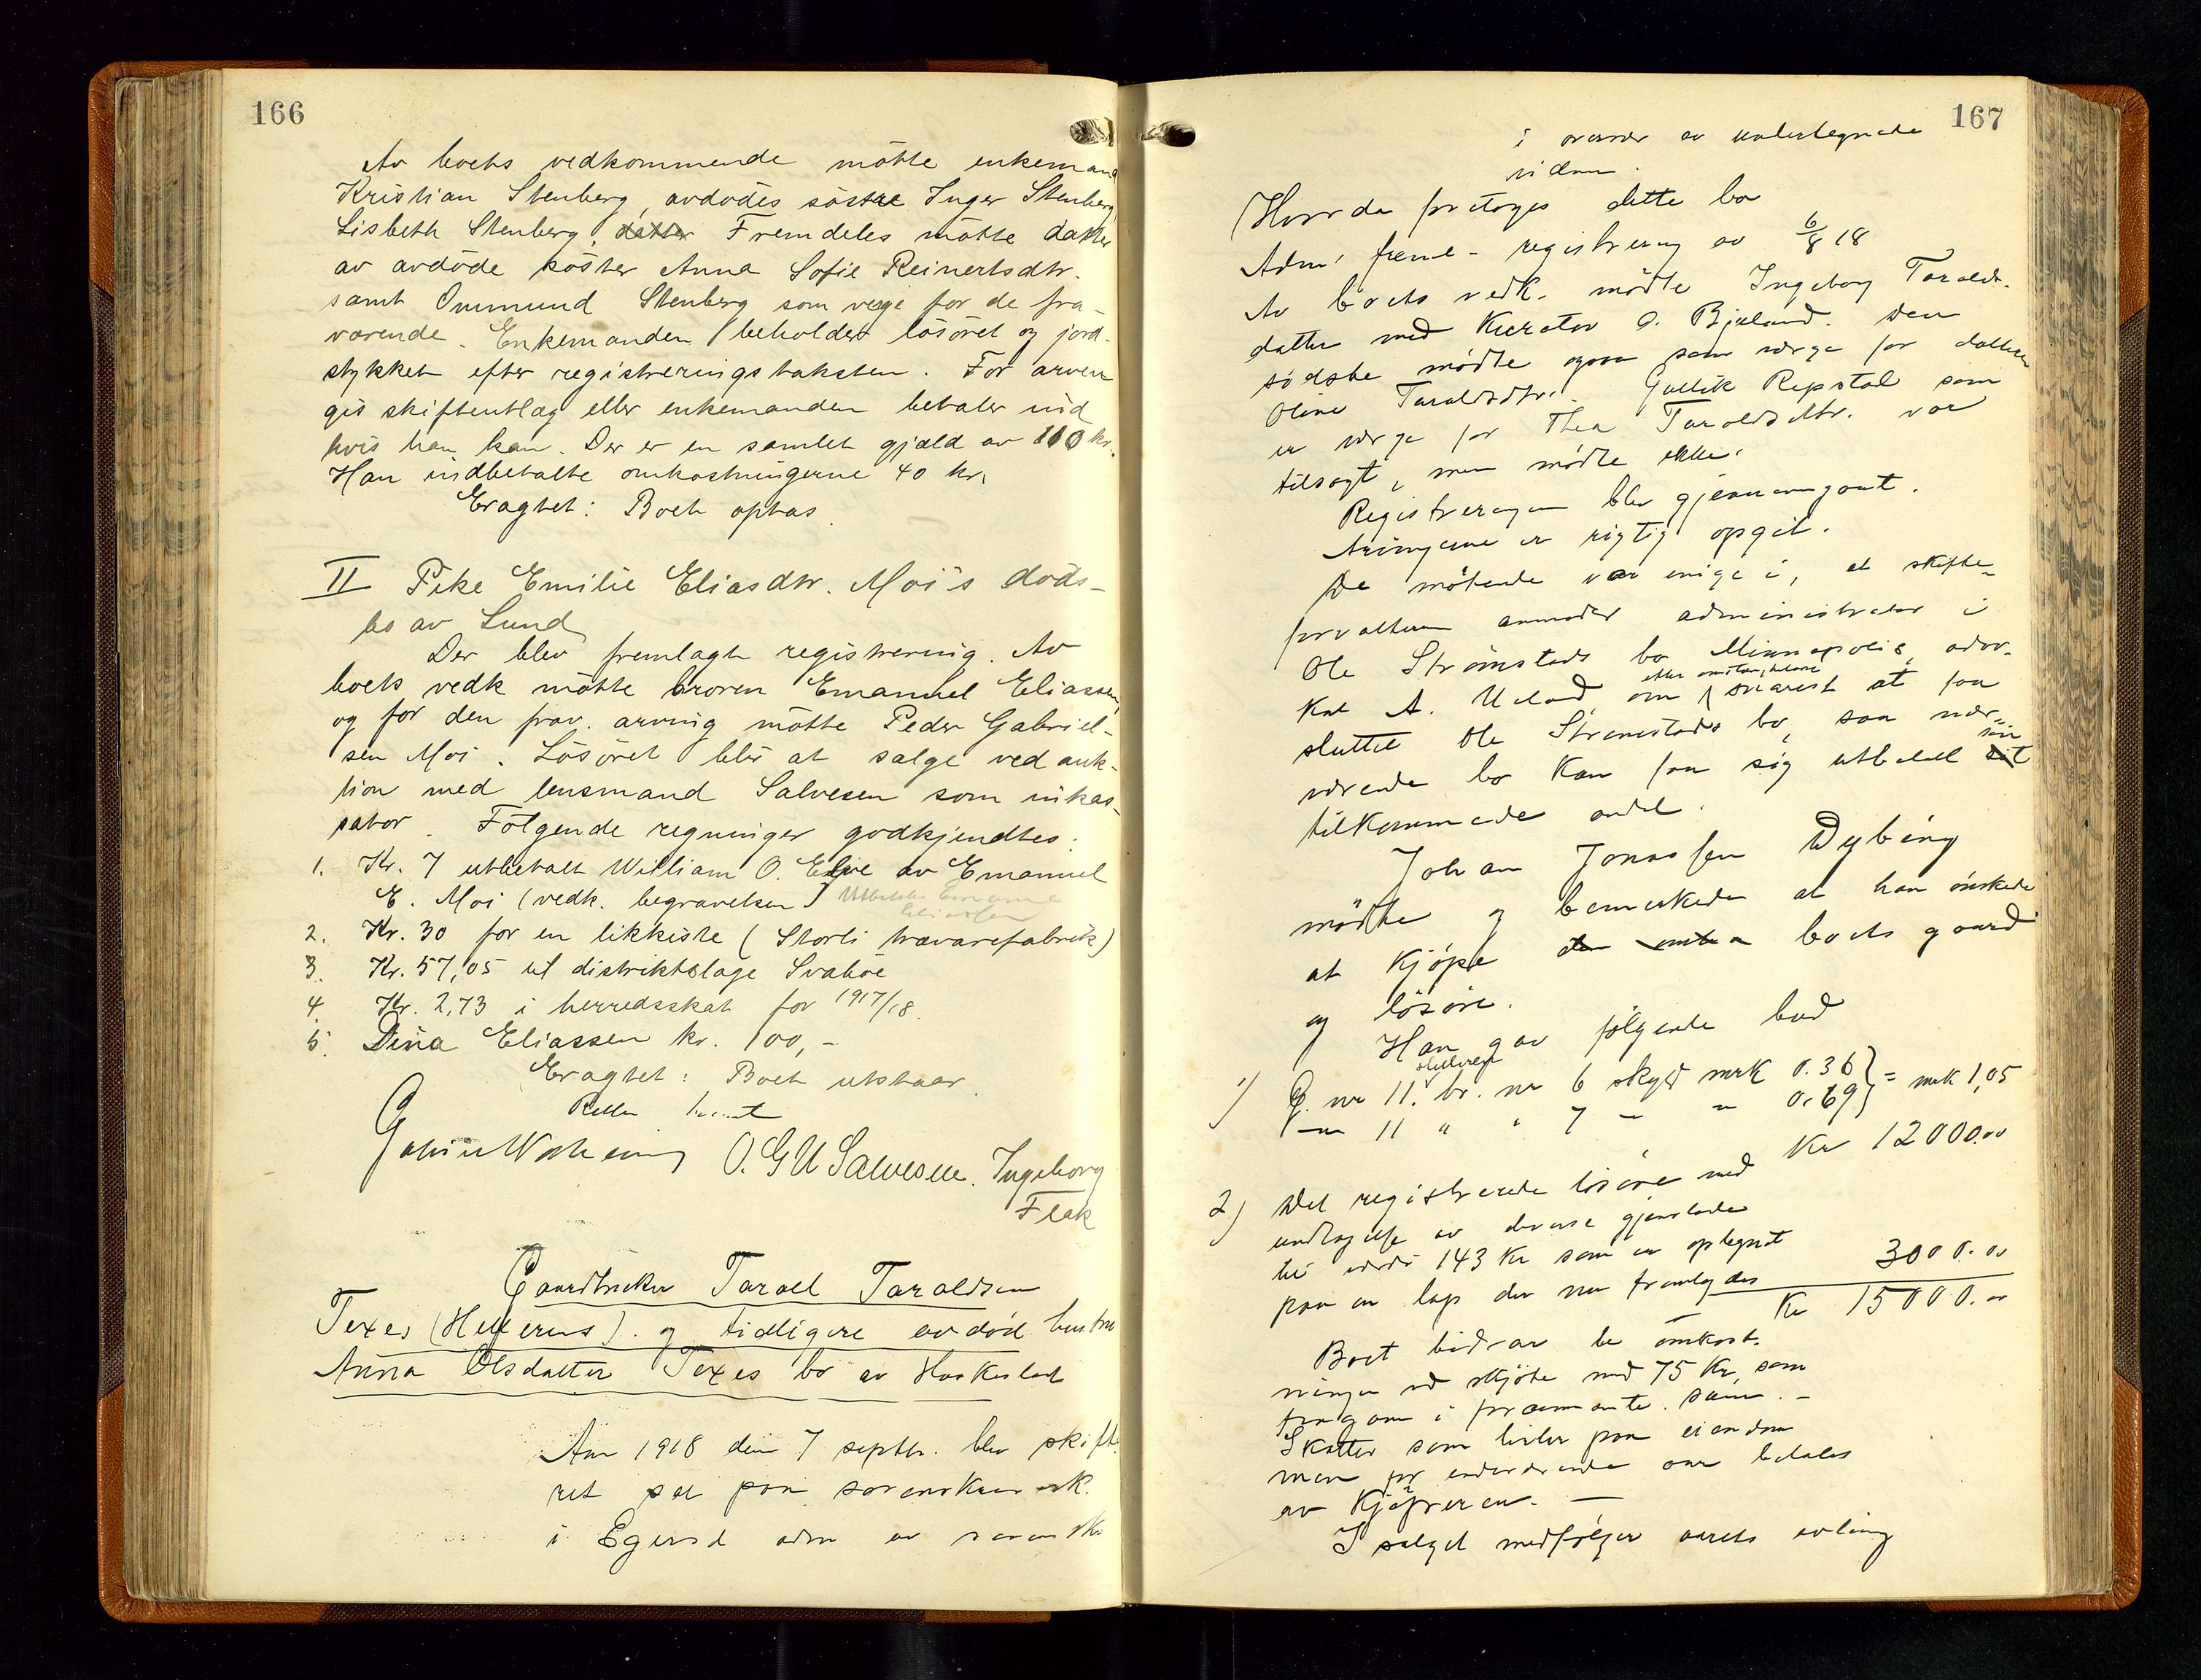 166
Av boets vedkommende møtte enkemand
Kristian Stenberg, avdødes søstre Inger Stenberg
Lisbeth Stenberg, datter Fremdeles møtte datter
av avdøde søster Anna Sofie Reinertsdtr.
samt Ommund Stenberg som verge for de fra-
værende. Enkemanden beholder løsøret og jord-
stykket efter registreringstaksten. For arven
gis skifteutlæg eller enkemanden betaler ind
hvis han kan. Der er en samlet gjæld av 110 kr.
Han indbetalte omkostningerne 40 kr.
Eragtet: Boet optas
II Pike Emilie Eliasdtr. Moi's døds-
bo av Lund
Der blev fremlagt registrering. Av
boets vedk møtte broren Emanuel Eliassen,
og for den frav. arving møtte Peder Gabriel-
sen Moi. Løsøret blir at sælge ved auk-
tion med lensmand Salvesen som inkas-
sator. Følgende regninger godkjendtes:
1. Kr. 7 utbetalt William O. Elve av Emanuel
E. Moi (vedk. begravelsen) Utbetales Emanuel
Eliassen
2. Kr. 30 for en likkiste (Storli trævarefabrik)
3. Kr. 57,05 til distriktslæge Svabøe
4. Kr. 2,73 i herredsskat for 1917/18.
5. Dina Eliassen kr. 100,-
Eragtet: Boet utstaar
Retten hævet
O. G U Salvesen. Ingeborg
Fleak
Gaardbruker Tarald Taraldsen
Texes (Helleren's). og tidligere avdød hustru
Anna Olsdatter Texes bo av Heskestad
Aar 1918 den 7 septbr. blev skift.
ret sat paa sorenskr. k.
i Egersd adm av sorenskr
167
i overvær av undertegnede
vidner.
Hvorda foretoges dette bo
Adm. freml- registrering av 6/8 18
Av boets vedk. mødte Ingeborg Taralds-
datter med Kurator O. Bjuland. Den
sidste mødte ogsaa som værge for datteren
Oline Taraldsdtr. Gullik Repstad som
er værge for Thea Taraldsdtr. var
tilsagt, men mødte ikke.
Registreringen blev gjennemgaat.
Arvingerne er rigtig opgit.
De møtende var enige i, at skifte-
forvalteren anmoder administrator i
Ole Strømstads bo Minnapolis, advo-
kat A. Ueland, om snarest at faa
sluttet Ole Strømstads bo, saa nær-
værende bo kan faa sig utbetalt sit sin
tilkommende andel.
Johan Jonassen Dybing
mødte og bemerkede at han ønskede
at kjøpe boets gaard
og løsøre.
Han gav følgende bud
1) G. nr 11. br. nr 6 skyld mrk 0.36 } = mrk 1,05
11 " " 7 - - 0.69 }
Kr 12000.00
2) Det registrerede løsøre med
undtagelse av diverse gjenstande
til værdi 143 Kr som er optegnet
paa en lap der nu fremlægdes 3000.00
Kr 15000.00
Boet bidrar til omkost-
ninger ved skjøte med 75 Kr, som
fragaar i sum.-
Skatter som hviler paa eiendom-
men for indeværende aar betales
av Kjøperen. -
I salget medfølger aarets avling